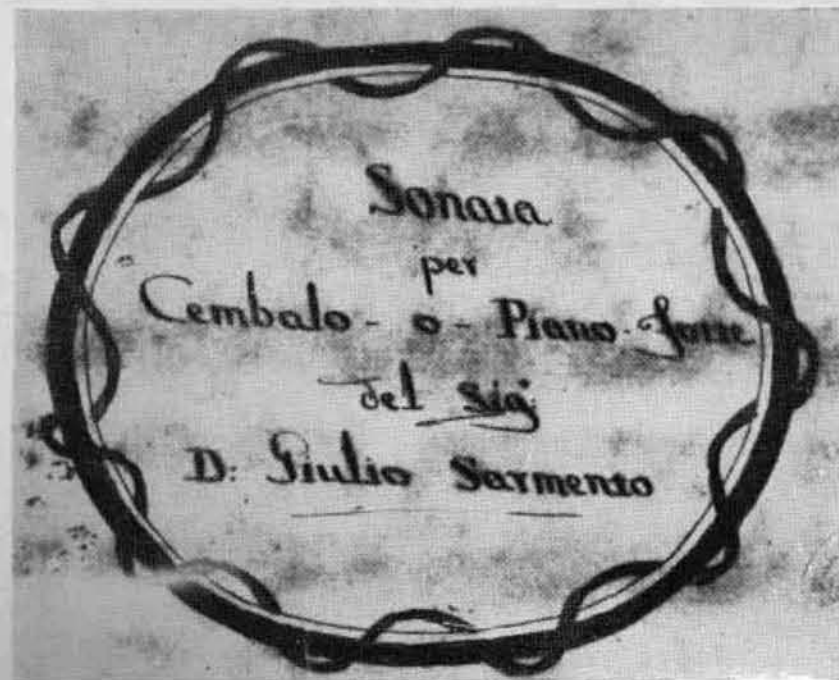 Sonata
per
Cembalo - o - Piano-forte
del Sig.
D: Giulio Sarmento